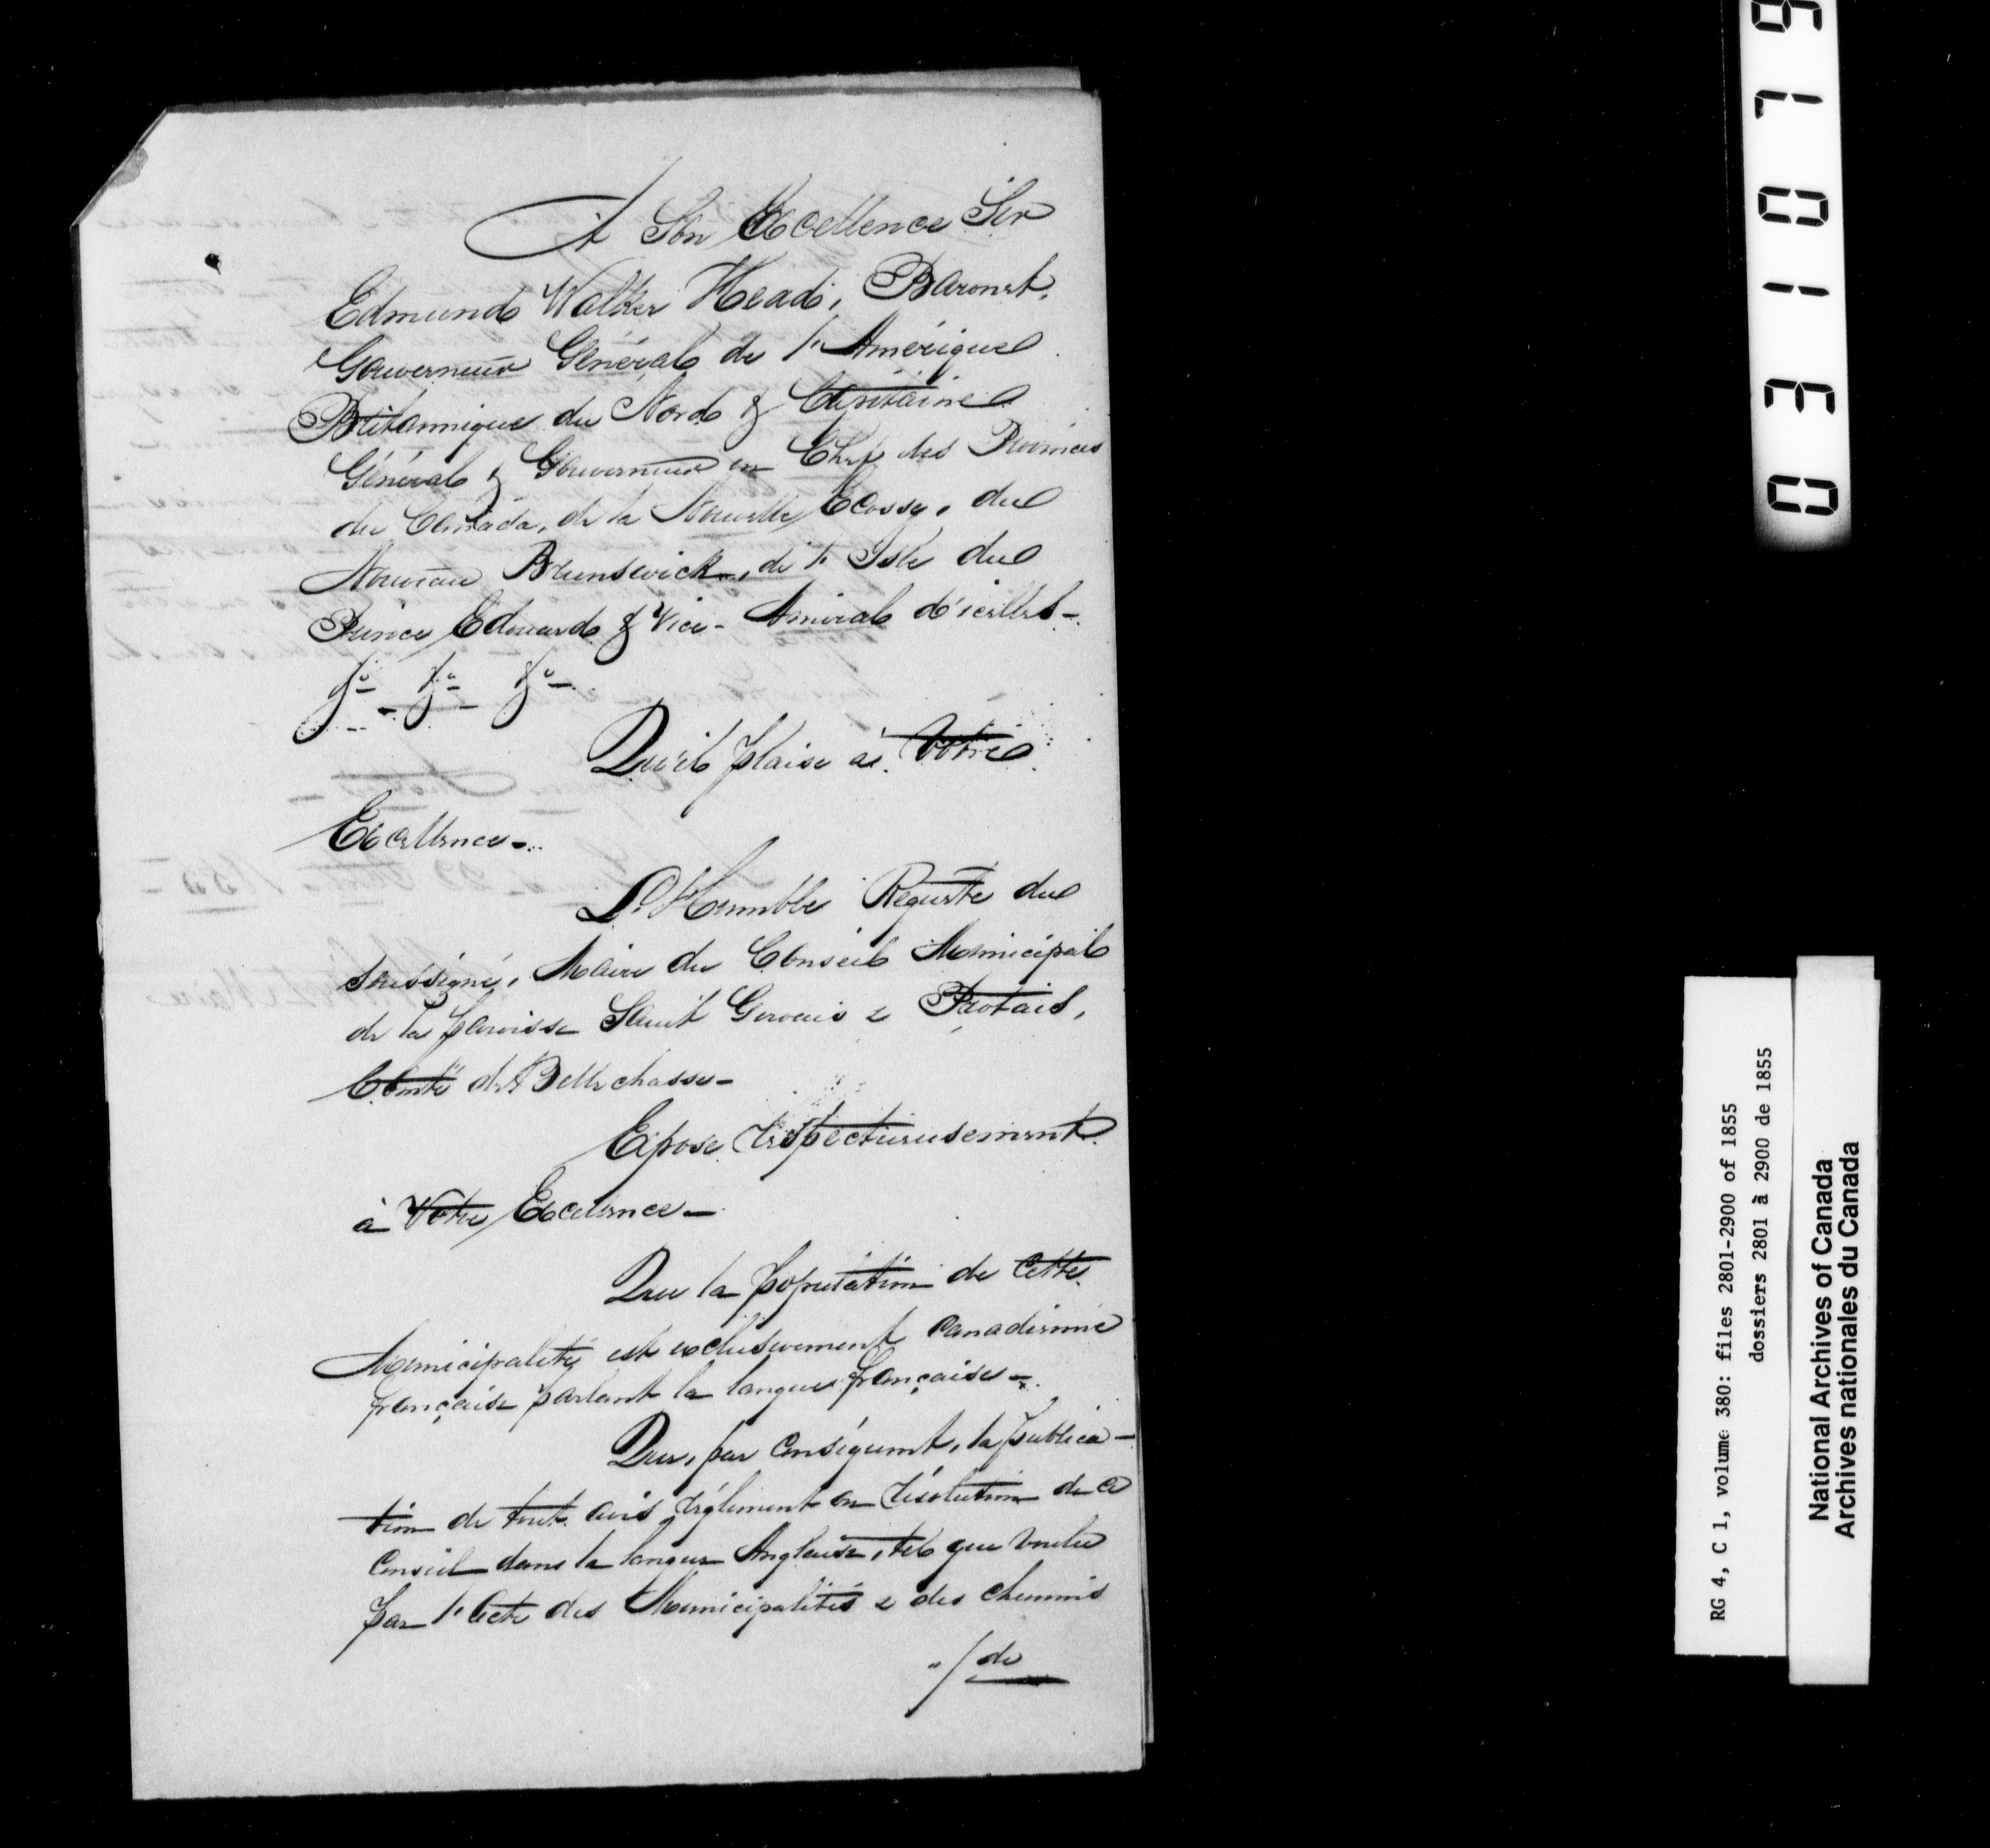 A Son Excellence Sir
Edmund Walker Head, Baronet,
Gouverneur Général de l'Amérique
Britannique du Nord & Capitaine
Général & Gouverneur en Chef des Provinces
du Canada, de la Nouvelle Ecosse, du
Nouveau Brunswick, de l'Isle du
Prince Edouard & Vice-Amiral d'icelles-
&a- &a- &a-
Qu'il plaise à Votre
Excellence-
L'Humble Requête du
soussigné, Maire du Conseil Municipal
de la paroisse Saint Gervais & Protais,
Comté de Bellechasse-
Expose respectueusement
à Votre Excellence-
Que la population de cette
Municipalité est exclusivement canadienne
française parlant la langue française-
Que, par conséquent, la publica-
tion de tout avis, réglement ou résolution de ce
Conseil dans la langue Anglaise, tel que voulu
par l'Acte des Municipalités & des chemins
./de
RG 4, C 1, volume 380: files 2801-2900 of 1855
dossiers 2801 à 2900 de 1855
National Archives of Canada
Archives nationales du Canada